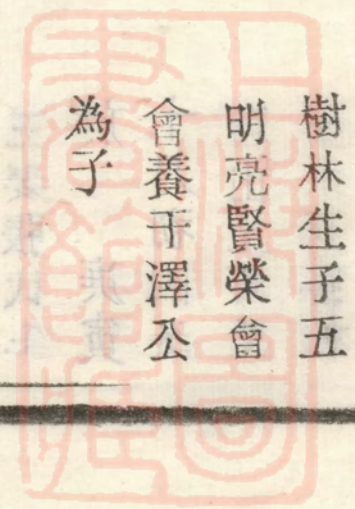 樹林生子五
明亮賢榮會
會養于澤公
為子